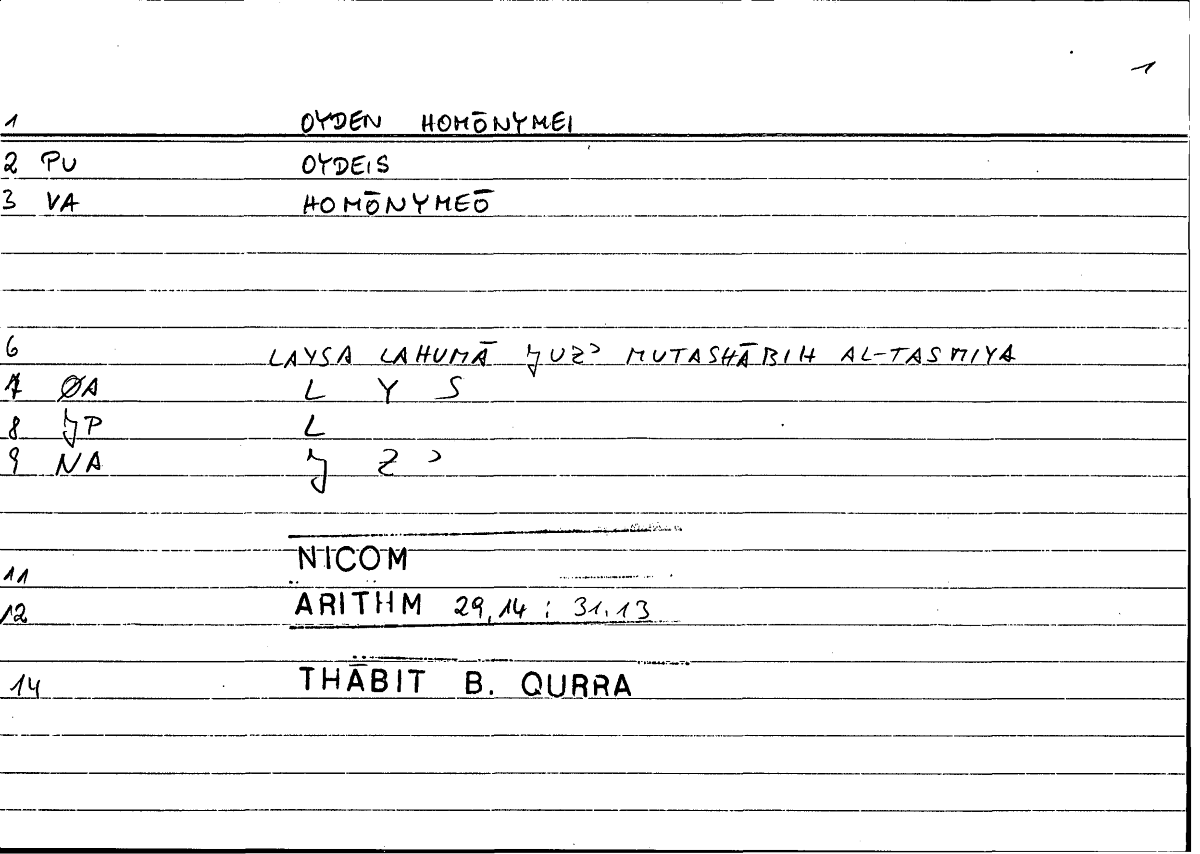 1
1 OYDEN HOMŌNYMEI
2 PU OYDEIS
3 VA HOMŌNYMEŌ
6 LAYSA LAHUMĀ JUZʾ MUTASHĀBIH AL-TASMIYA
7 ØA L Y S
8 JP L
9 NA J Z ʾ
11 NICOM
12 ARITHM 29,14 : 31.13
14 THĀBIT B. QURRA